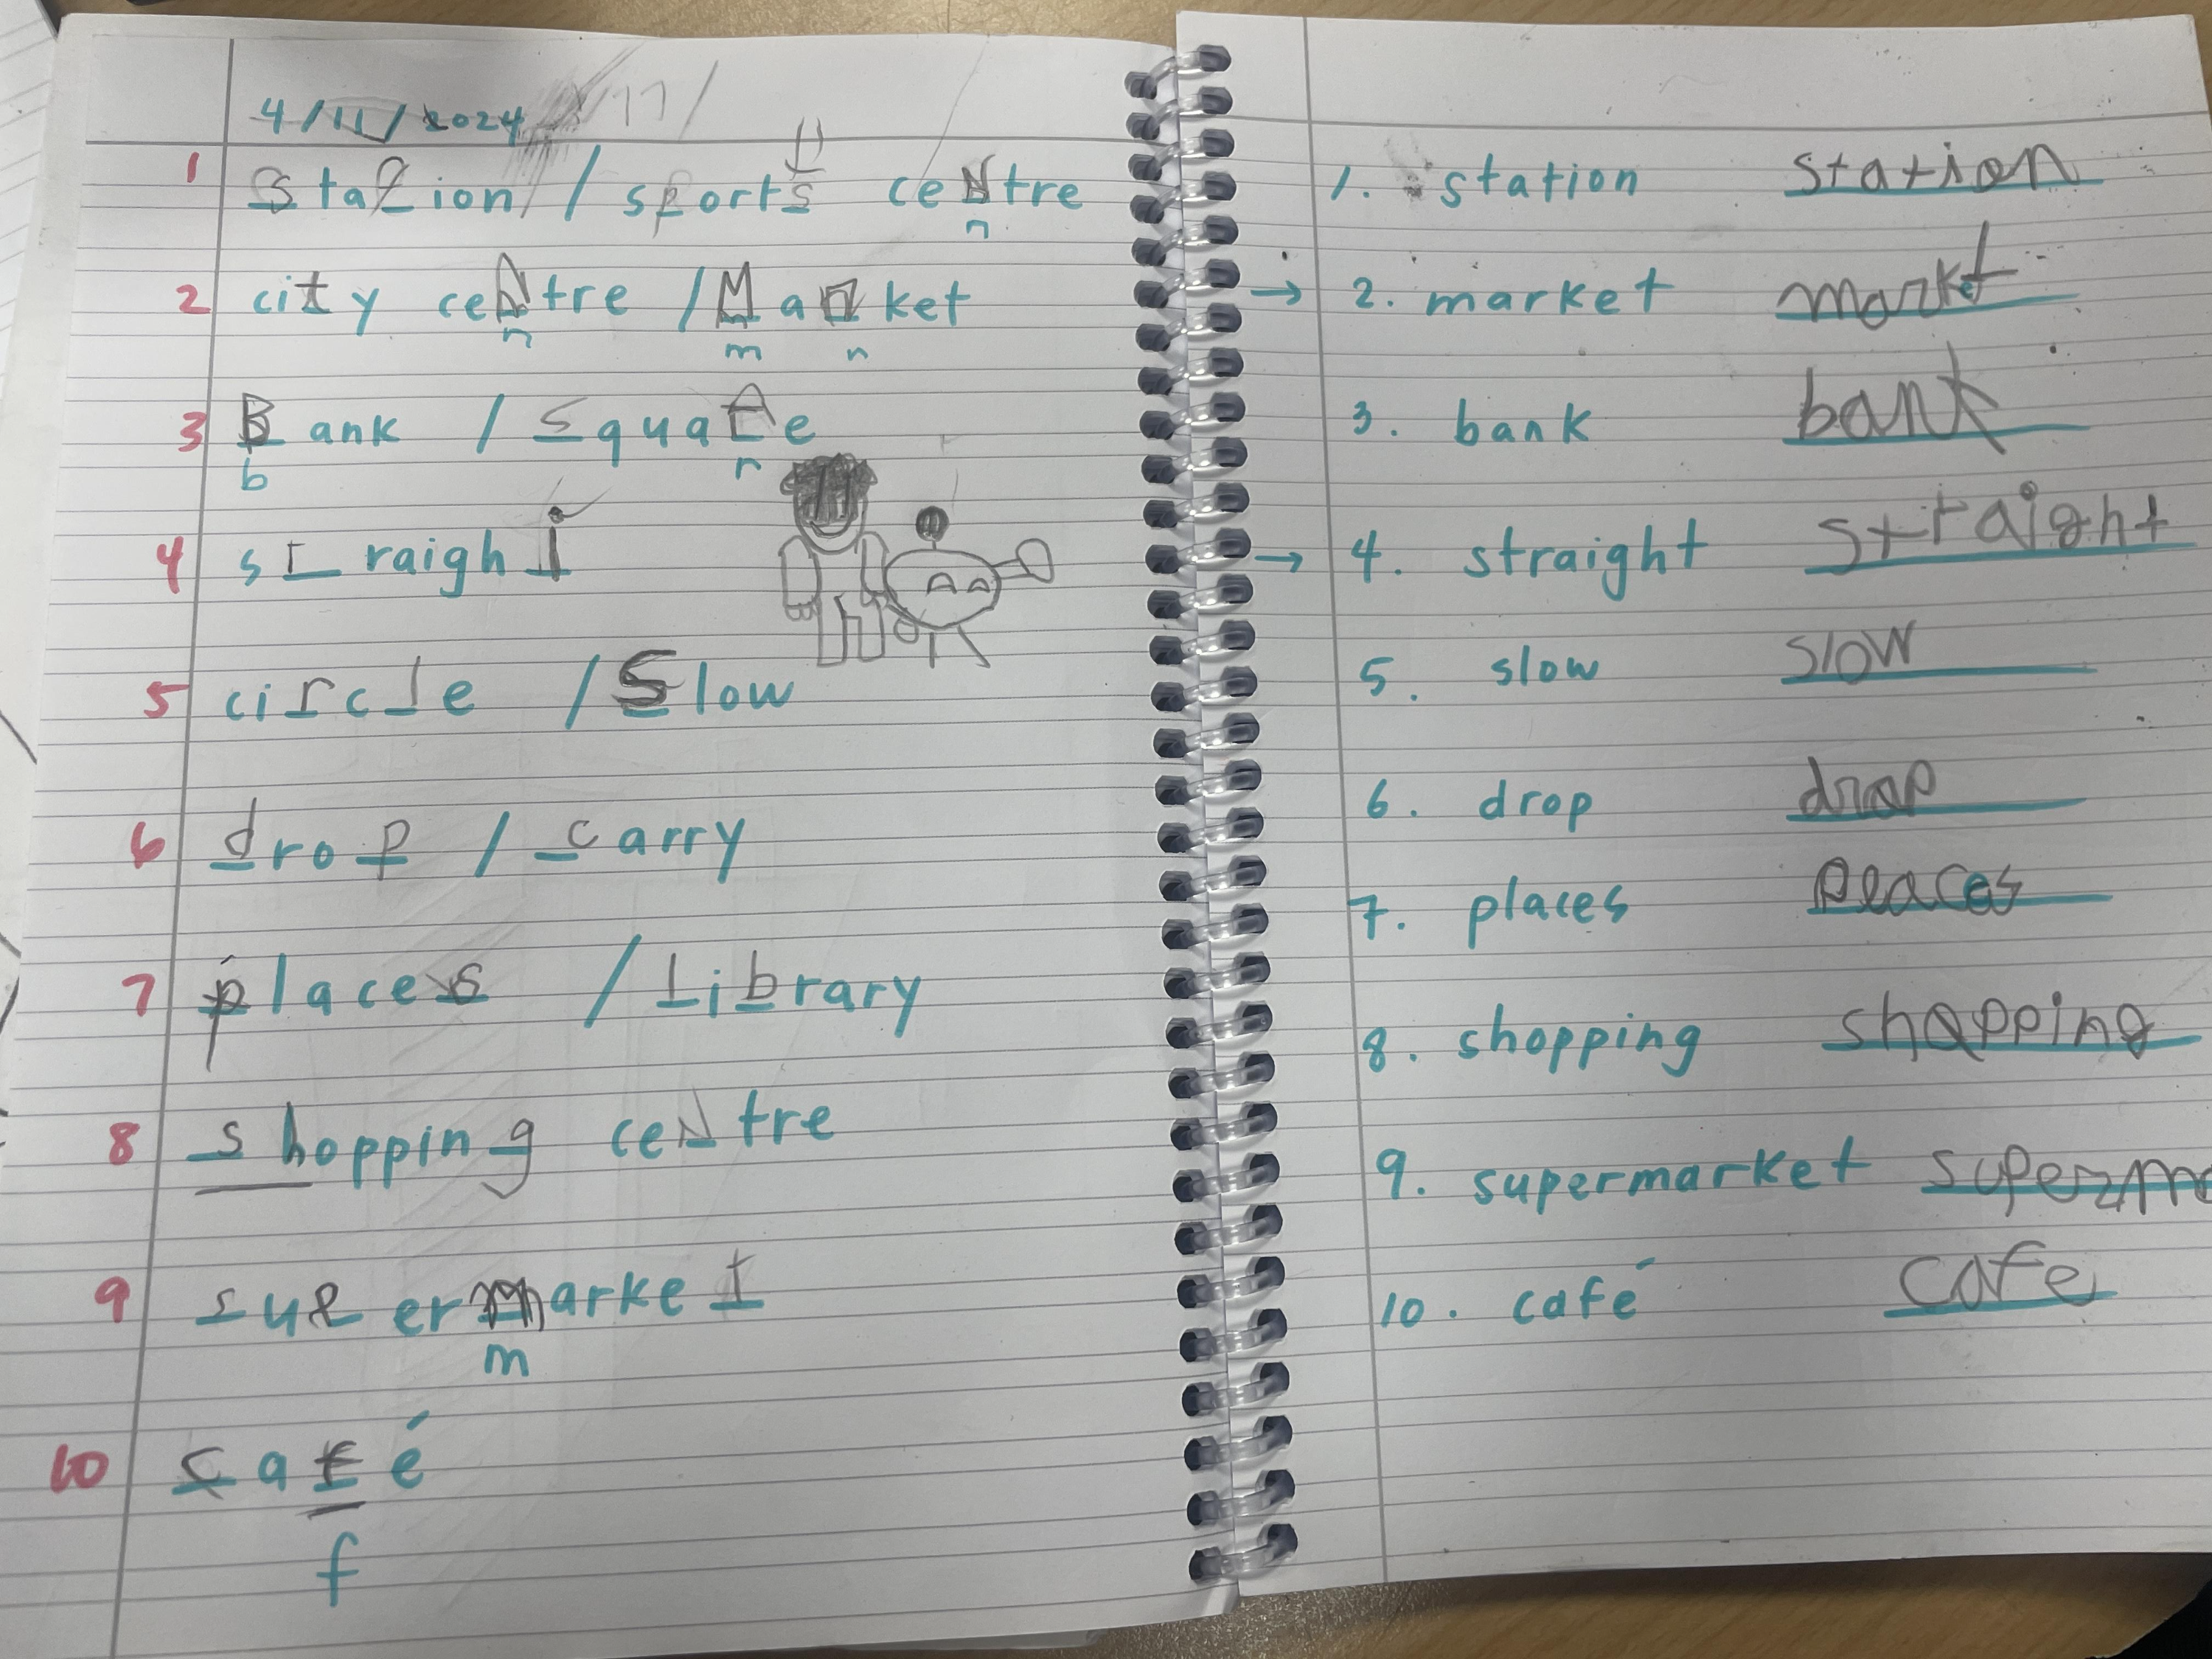 4/11/2024 /11/
1 Station / sports centre
n
2 city ceNtre / Manket
n m n
3 Bank / square
b r
4 straight
5 circle / Slow
6 drop / carry
7 places / Library
8 shopping ceNtre
9 supermarket
m
10 café
f
1. station station
→ 2. market market
3. bank bank
→ 4. straight straight
5. slow slow
6. drop drop
7. places places
8. shopping shopping
9. supermarket superma
10. café cafe